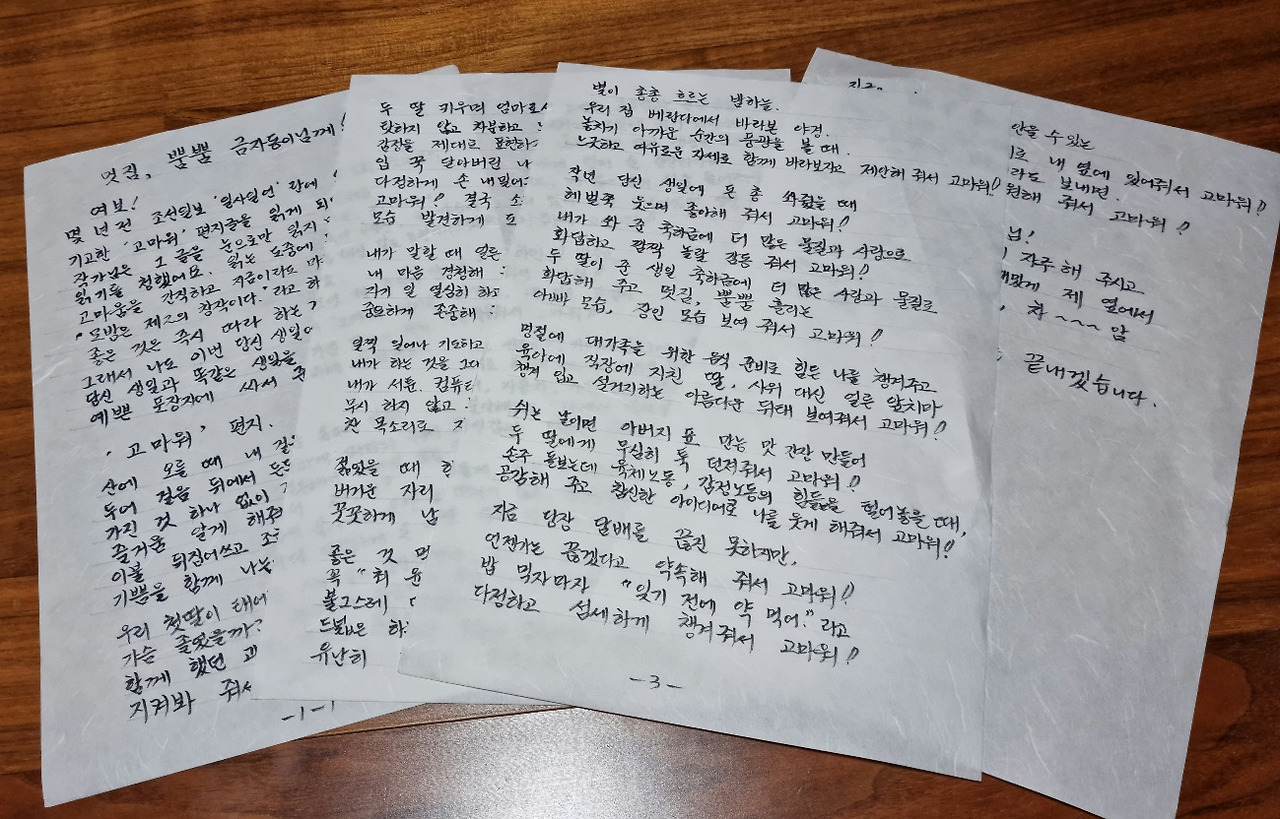 멋짐, 뿜뿜 금자동이님께!
여보!
몇 년전 조선일보 '일사일언' 란에
기고한 '고마워' 편지글을 읽게 되
작가님은 그 글을 눈으로만 읽지
읽기를 청했어요. 읽는 도중에
고마움을 간직하고 지금이라도
"모방은 제2의 창작이다." 라고
좋은 것은 즉시 따라 하는
그래서 나도 이번 당신 생일
당신 생일과 똑같은 생일을
예쁜 포장지에 싸서
'고마워' 편지.
산에 오를 때 내
두어 걸음 뒤에서
가진 것 하나 없이
즐거운 알게 해줘
이불 뒤집어쓰고
기쁨을 함께 나눔
우리 첫딸이 태어
가슴 졸였을까?
함께 했던
지켜봐 줘서
-1-
두 딸 키우며 엄마로서
탓하지 않고 차분하고
감정을 제대로 표현하
입 꼭 닫아버린 나
다정하게 손 내밀어
고마워! 결국
모습 발견하게
내가 말할 때
내 마음 경청해
각기 일 열심히
중요하게 존중해
일찍 일어나 기도하고
내가 하는 것을 그대
내가 서툰 컴퓨터
무시 하지 않고
찬 목소리로
젊었을 때
버거운 자리
꿋꿋하게
좋은 것
꼭 "최 윤
불그스레
드넓은
유난히
별이 총총 흐르는 밤하늘.
우리 집 베란다에서 바라본 야경.
놓치기 아까운 순간의 풍광을 볼 때.
느긋하고 여유로운 자세로 함께 바라보자고 제안해 줘서 고마워!!
작년 당신 생일에 돈 총 쏴줬을 때
헤벌쭉 웃으며 좋아해 줘서 고마워!!
내가 쏴 준 축하금에 더 많은 물질과 사랑으로
화답하고 깜짝 놀랄 감동 줘서 고마워!!
두 딸이 준 생일 축하금에 더 많은 사랑과 물질로
화답해 주고 멋짐, 뿜뿜 흘리는
아빠 모습, 장인 모습 보여 줘서 고마워!!
명절에 대가족을 위한 음식 준비로 힘든 나를 챙겨주고
육아에 직장에 지친 딸, 사위 대신 얼른 앞치마
챙겨 입고 설거지하는 아름다운 뒤태 보여줘서 고마워!!
쉬는 날이면 아버지 표 만능 맛 간장 만들어
두 딸에게 무심히 툭 던져줘서 고마워!!
손주 돌보는데 육체노동, 감정노동의 힘듦을 털어놓을 때,
공감해 주고 참신한 아이디어로 나를 웃게 해줘서 고마워!!
지금 당장 담배를 끊진 못하지만,
언젠가는 끊겠다고 약속해 줘서 고마워!!
밥 먹자마자 "잊기 전에 약 먹어." 라고
다정하고 섬세하게 챙겨줘서 고마워!!
-3-
안을 수 있는
로 내 옆에 있어줘서 고마워!!
라도 보내면.
원해 줘서 고마워!!
님!
자주 해 주시고
제 옆에서
차~~~암
끝내겠습니다.